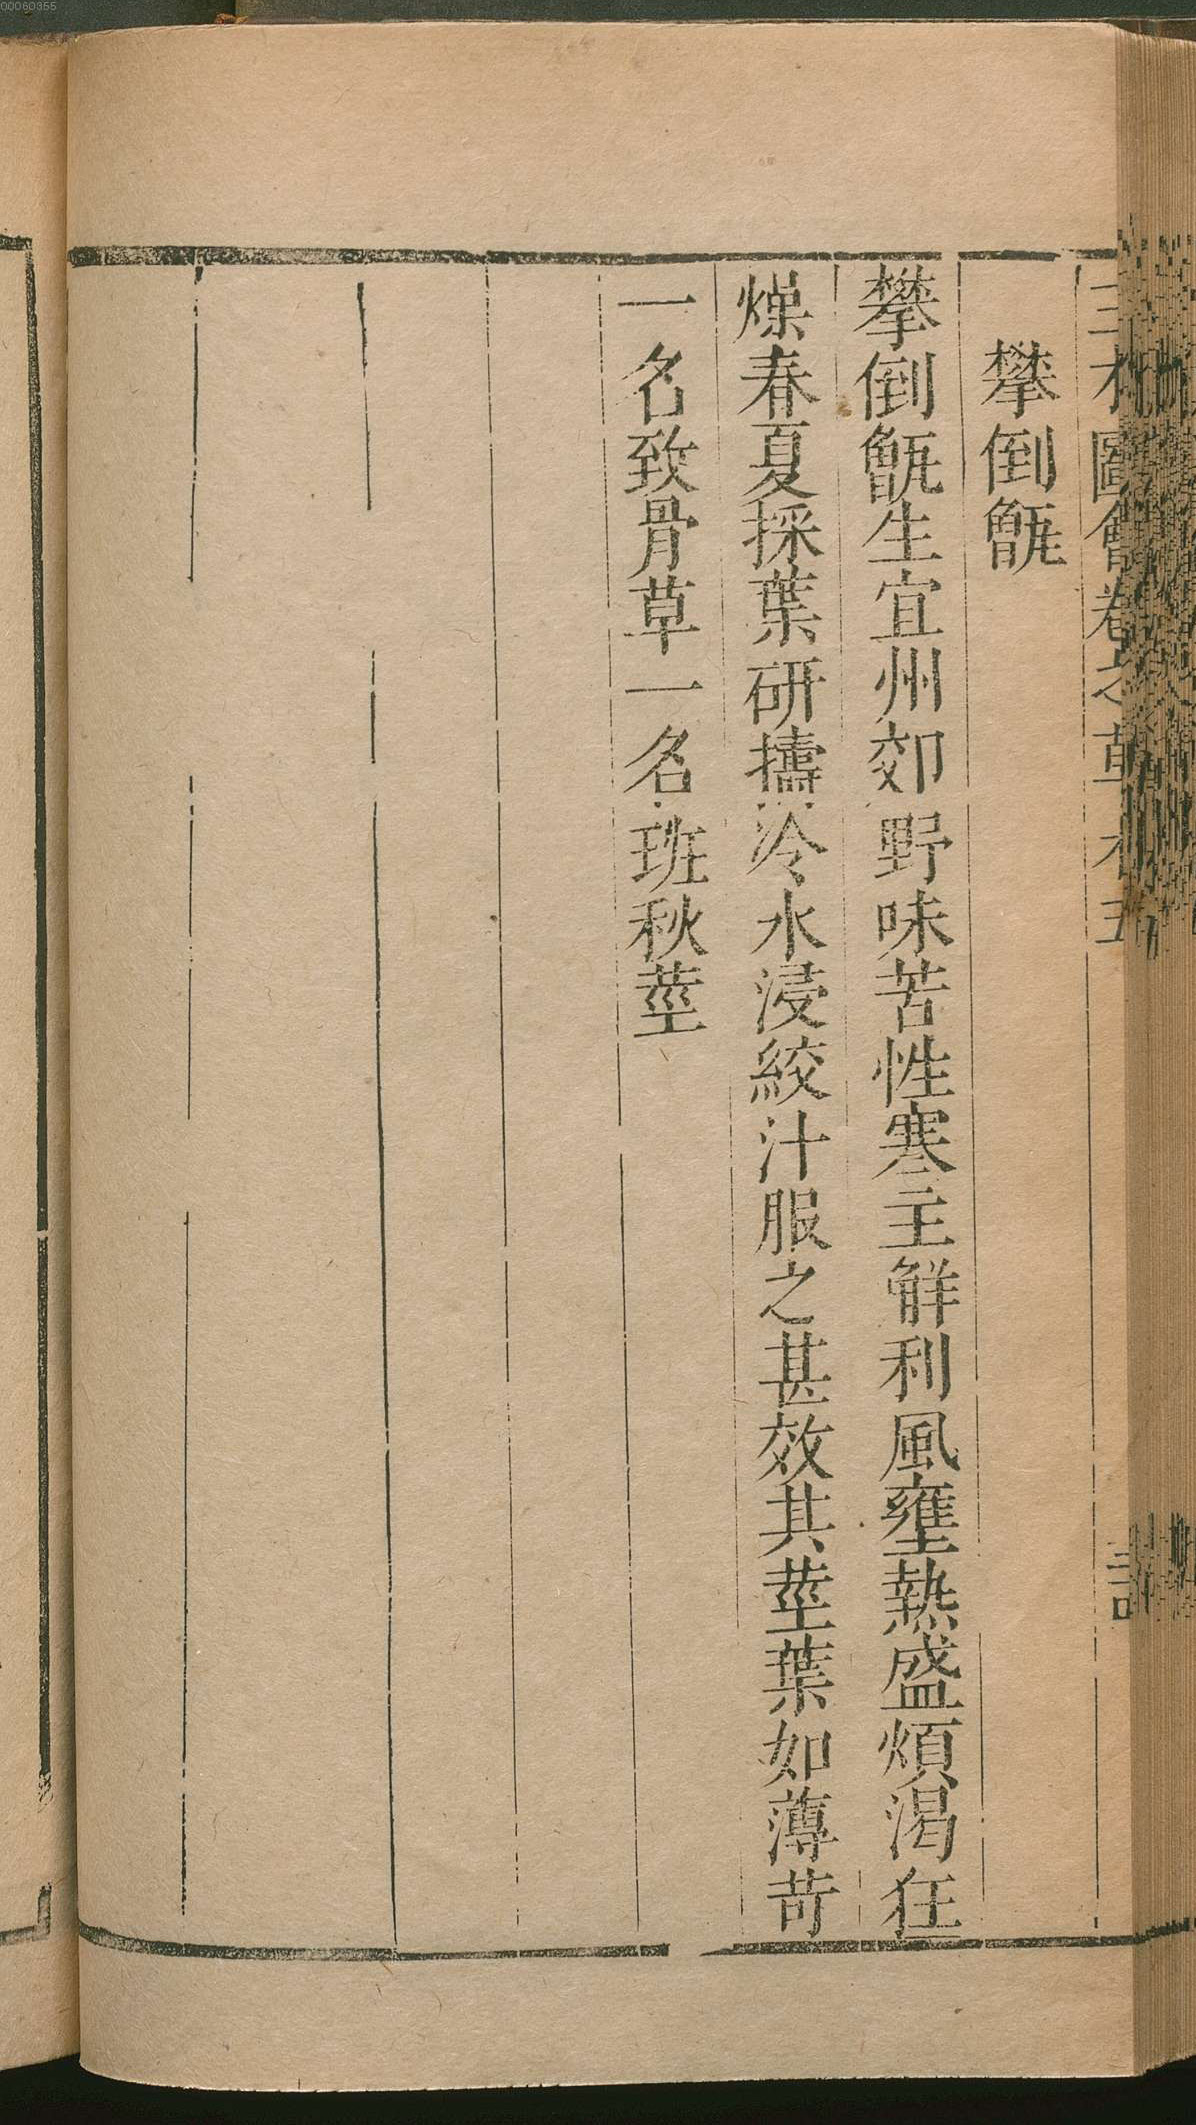 00060355
三才圖會卷之草木五
攀倒甑
攀倒甑生宜州郊野味苦性寒主解利風壅熱盛煩渴狂
燥春夏採葉研擣冷水浸絞汁服之甚效其莖葉如薄苛
一名致骨草一名班秋莖